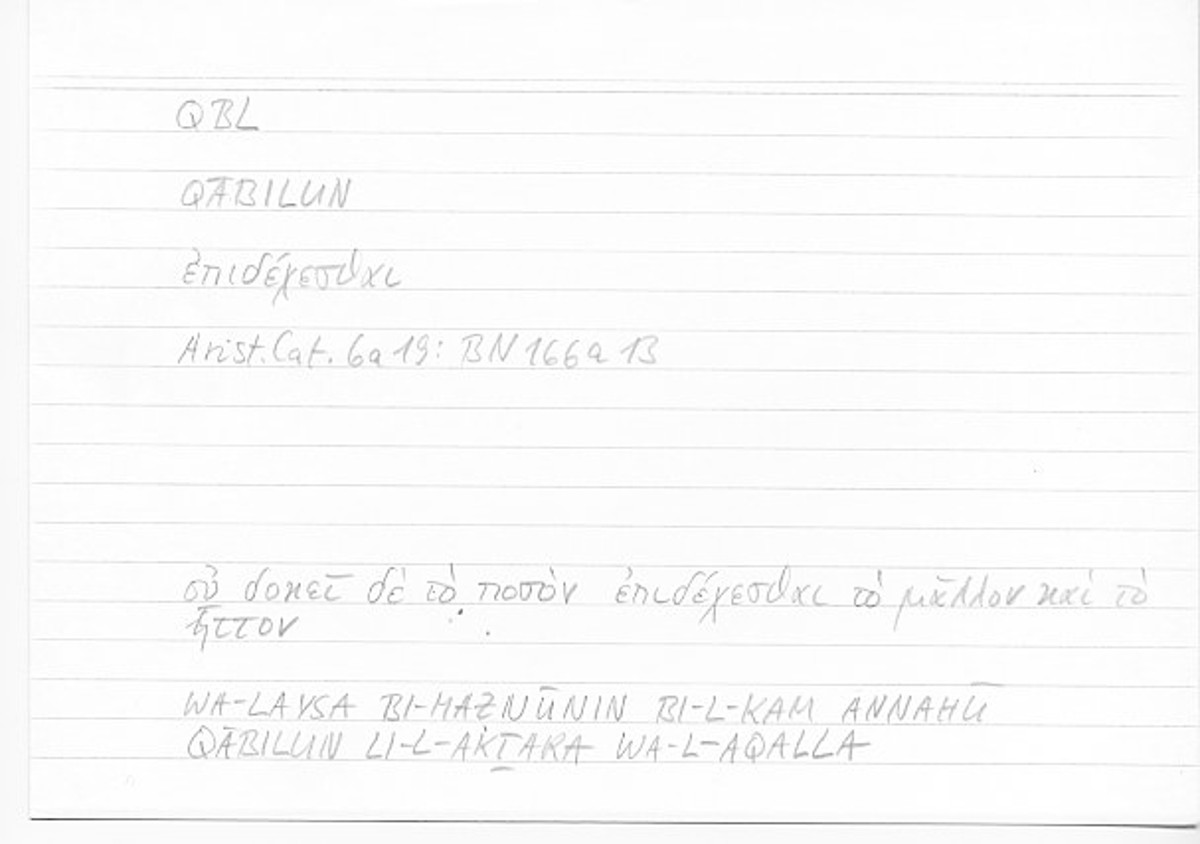 QBL
QĀBILUN
ἐπιδέχεσθαι
Arist. Cat. 6a19: BN 166a 13
οὐ δοκεῖ δὲ τὸ ποσὸν ἐπιδέχεσθαι τὸ μᾶλλον καὶ τὸ
ἧττον
WA-LAYSA BI-MAẒNŪNIN BI-L-KAM ANNAHŪ
QĀBILUN LI-L-AKṮARA WA-L-AQALLA